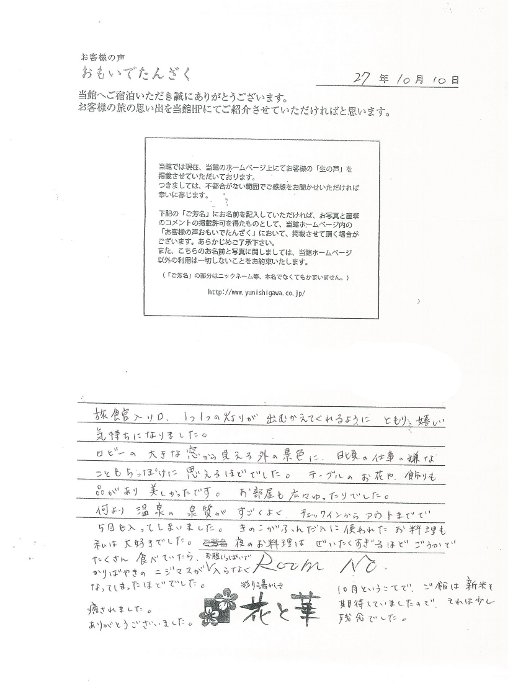 お客様の声
おもいでたんざく
27 年 10 月 10 日
当館へご宿泊いただき誠にありがとうございます。
お客様の旅の思い出を当館HPにてご紹介させていただければと思います。
当館では現在、当館のホームページ上にてお客様の「生の声」を
掲載させていただいております。
つきましては、不都合がない範囲でご感想をお聞かせいただければ
幸いに存じます。
下記の「ご芳名」にお名前を記入していただければ、お写真と直筆
のコメントの掲載許可を得たものとして、当館ホームページ内の
「お客様の声おもいでたんざく」において、掲載させて頂く場合が
ございます。あらかじめご了承下さい。
また、こちらのお名前と写真に関しましては、当館ホームページ
以外の利用は一切しないことをお約束いたします。
(「ご芳名」の部分はニックネーム等、本名でなくてもかまいません。)
http://www.yunishigawa.co.jp/
旅館入り口、1つ1つの灯りが 出むかえてくれるように ともり、嬉しい
気持ちになりました。
ロビーの 大きな窓から見える外の景色に、日頃の仕事の嫌な
こともちっぽけに 思えるほどでした。 テーブルのお花や、飾りも
品があり 美しかったです。 お部屋も広々ゆったりでした。
何より 温泉の 泉質が すごくよく チェックインから アウトまでで
5回も入ってしまいました。 きのこがふんだんに 使われた お料理も
私は大好きでした。 夜のお料理は ぜいたくすぎるほど ごうかで
たくさん 食べていたら、お腹いっぱいで
かりばやきの ニジマスが 入らなく
なってしまったほどでした。
Room No.
癒されました。
ありがとうございました。
彩り湯かしき
花と華
10月ということで、ご飯は 新米を
期待していましたので、それは少し
残念でした。